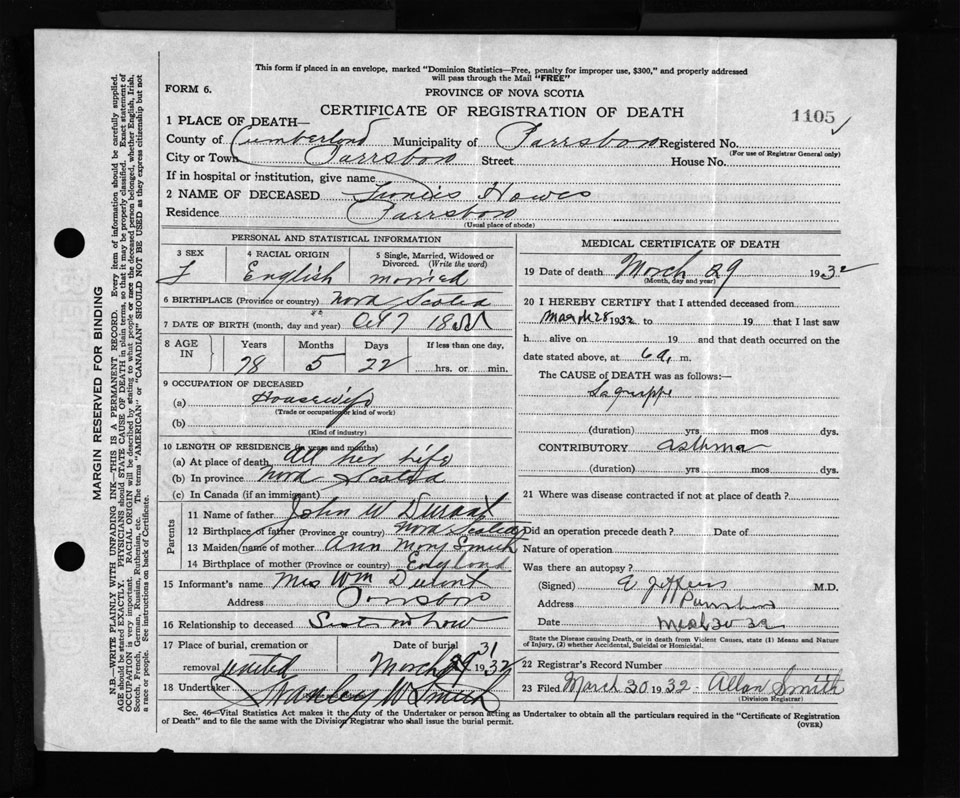 This form if placed in an envelope, marked "Dominion Statistics—Free, penalty for improper use, $300," and properly addressed
will pass through the Mail "FREE"
FORM 6.
PROVINCE OF NOVA SCOTIA
CERTIFICATE OF REGISTRATION OF DEATH
1105
1 PLACE OF DEATH—
County of Cumberland Municipality of Parrsboro Registered No.
(For use of Registrar General only)
City or Town Parrsboro Street House No.
If in hospital or institution, give name
2 NAME OF DECEASED Howes
Residence Parrsboro
(Usual place of abode)
PERSONAL AND STATISTICAL INFORMATION
3 SEX F
4 RACIAL ORIGIN English
5 Single, Married, Widowed or Divorced. (Write the word) married
6 BIRTHPLACE (Province or country) Nova Scotia
7 DATE OF BIRTH (month, day and year) Oct 7 18
8 AGE IN Years 78 Months 5 Days 22 If less than one day, hrs. or min.
9 OCCUPATION OF DECEASED
(a) Housewife
(Trade or occupation or kind of work)
(b)
(Kind of industry)
10 LENGTH OF RESIDENCE (in years and months)
(a) At place of death All her life
(b) In province Nova Scotia
(c) In Canada (if an immigrant)
Parents
11 Name of father John W
12 Birthplace of father (Province or country) Nova Scotia
13 Maiden name of mother Ann Mary Smith
14 Birthplace of mother (Province or country) England
15 Informant's name Mrs Wm
Address Parrsboro
16 Relationship to deceased Sister in Law
17 Place of burial, cremation or removal united
Date of burial March 29 31 1932
18 Undertaker Stanley W Smith
MEDICAL CERTIFICATE OF DEATH
19 Date of death March 29 1932
(Month, day and year)
20 I HEREBY CERTIFY that I attended deceased from
March 28 1932 to 19 that I last saw
h alive on 19 and that death occurred on the
date stated above, at 6 a. m.
The CAUSE OF DEATH was as follows:—
La grippe
(duration) yrs mos dys.
CONTRIBUTORY asthma
(duration) yrs mos dys.
21 Where was disease contracted if not at place of death?
Did an operation precede death? Date of
Nature of operation
Was there an autopsy?
(Signed) M.D.
Address Parrsboro
Date Mch 30 32
State the Disease causing Death, or in death from Violent Causes, state (1) Means and Nature
of Injury, (2) whether Accidental, Suicidal or Homicidal.
22 Registrar's Record Number
23 Filed March 30 1932 Allan Smith
(Division Registrar)
Sec. 46—Vital Statistics Act makes it the duty of the Undertaker or person acting as Undertaker to obtain all the particulars required in the "Certificate of Registration
of Death" and to file the same with the Division Registrar who shall issue the burial permit.
(OVER)
MARGIN RESERVED FOR BINDING
N.B.—WRITE PLAINLY WITH UNFADING INK—THIS IS A PERMANENT RECORD. Every item of information should be carefully supplied.
AGE should be stated EXACTLY. PHYSICIANS should STATE CAUSE OF DEATH in plain terms, so that it may be properly classified. Exact statement of
OCCUPATION is very important. RACIAL ORIGIN will be described by stating to what people or race the deceased person belonged, whether English, Irish,
Scotch, French, German, Russian, Ruthenian, etc. The terms "AMERICAN" or "CANADIAN" SHOULD NOT BE USED as they express citizenship but not
a race or people. See instructions on back of Certificate.